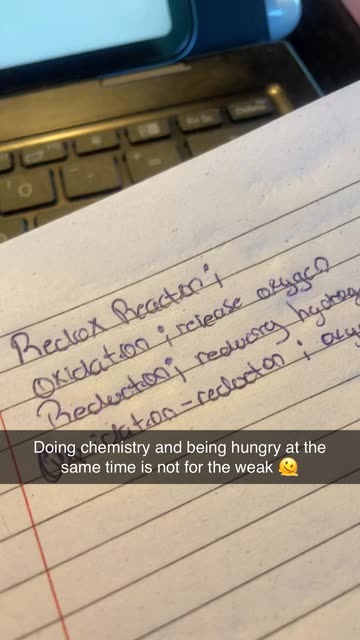 Redox Reaction;
Oxidation; release oxygen
Reduction; reducing hydrog
Oxidation-reduction; oxy
Doing chemistry and being hungry at the
same time is not for the weak 🫠